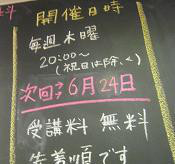 料
開催日時
毎週木曜
20:00〜
(祝日は除く)
次回は6月24日
受講料 無料
先着順です